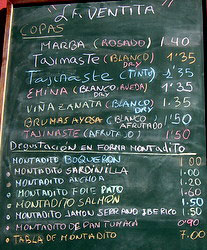 "LA VENTITA"
COPAS
MARBA (ROSADO) 1'40
TAJINASTE (BLANCO) DRY 1'35
TAJINASTE (TINTO) 1'35
EMINA (BLANCO, RUEDA) DRY 1'35
VIÑA ZANATA (BLANCO) DRY 1'35
GRUMASYOSA (BLANCO AFRUTADO) 1'50
TAJINASTE (AFRUTADO) 1'50
DEGUSTACIÓN EN FORMA MONTADITO
MONTADITO BOQUERON 1.00
MONTADITO SARDINILLA 1.00
MONTADITO ANCHOA 1.20
MONTADITO FOIE PATO 1.60
MONTADITO SALMON 1.50
MONTADITO JAMON SERRANO IBERICO 1.50
MONTADITO DE PAN TUMACA 0.90
TABLA DE MONTADITO 7.00